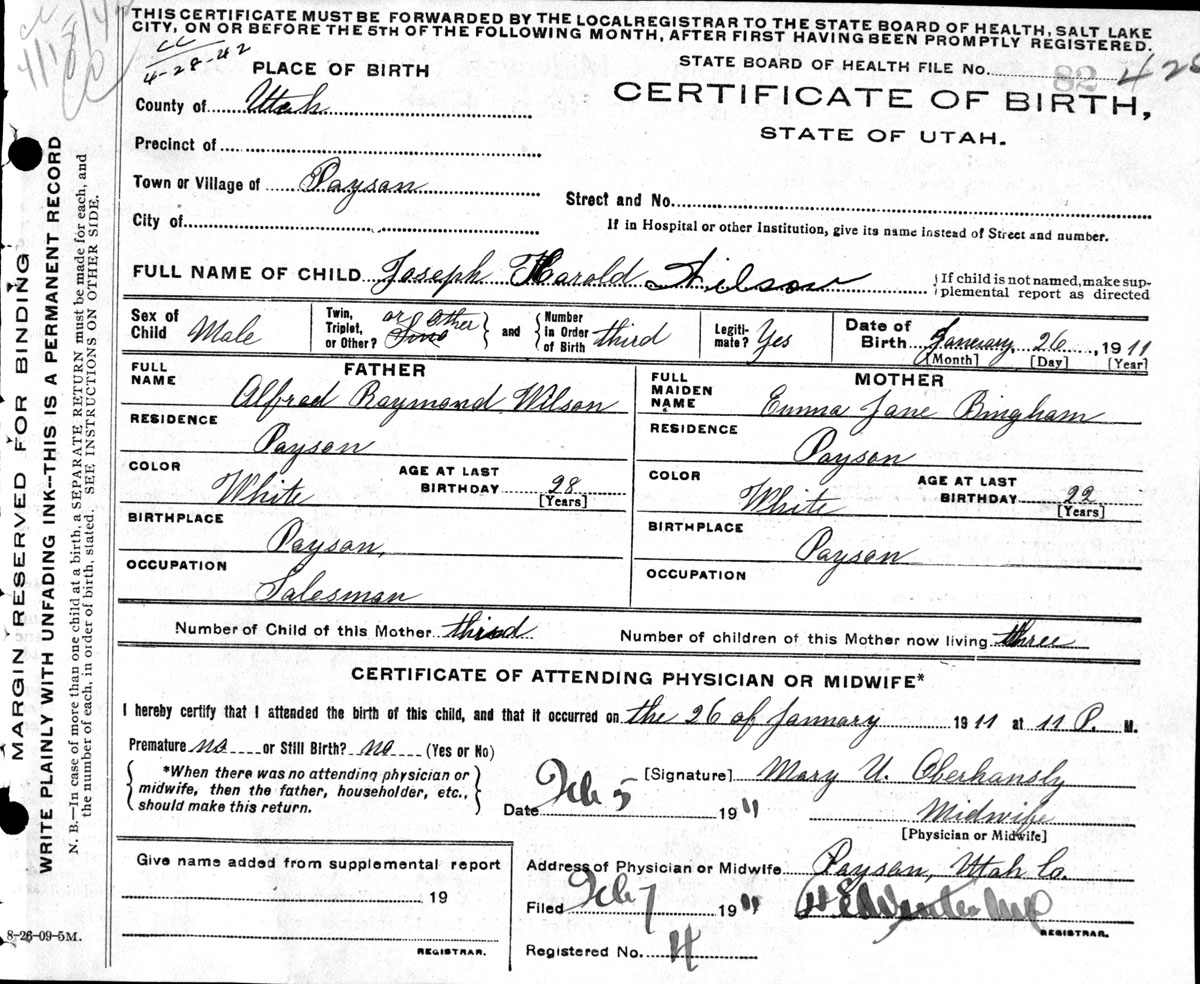 THIS CERTIFICATE MUST BE FORWARDED BY THE LOCALREGISTRAR TO THE STATE BOARD OF HEALTH, SALT LAKE
CITY, ON OR BEFORE THE 5TH OF THE FOLLOWING MONTH, AFTER FIRST HAVING BEEN PROMPTLY REGISTERED.
4-28-42
PLACE OF BIRTH
STATE BOARD OF HEALTH FILE No. 82
County of Utah
CERTIFICATE OF BIRTH,
STATE OF UTAH.
Precinct of
Town or Village of Payson
Street and No.
City of
If in Hospital or other Institution, give its name instead of Street and number.
FULL NAME OF CHILD Joseph Harold Wilson
If child is not named, make sup-
plemental report as directed
Sex of Child Male
Twin, Triplet, or Other? or Other
and
Number in Order of Birth third
Legiti- mate? Yes
Date of Birth January 26, 1911
[Month] [Day] [Year]
FATHER
MOTHER
FULL NAME Alfred Raymond Wilson
FULL MAIDEN NAME Emma Jane Bingham
RESIDENCE Payson
RESIDENCE Payson
COLOR White
AGE AT LAST BIRTHDAY 28 [Years]
COLOR White
AGE AT LAST BIRTHDAY 22 [Years]
BIRTHPLACE Payson,
BIRTHPLACE Payson
OCCUPATION Salesman
OCCUPATION
Number of Child of this Mother third
Number of children of this Mother now living three
CERTIFICATE OF ATTENDING PHYSICIAN OR MIDWIFE*
I hereby certify that I attended the birth of this child, and that it occurred on the 26 of January 1911 at 11 P. M.
Premature no or Still Birth? no (Yes or No)
*When there was no attending physician or
midwife, then the father, householder, etc.,
should make this return.
[Signature] Mary U. Oberhansly
Date Feb 5 1911
Midwife
[Physician or Midwife]
Give name added from supplemental report
19
REGISTRAR.
Address of Physician or Midwife Payson, Utah Co.
Filed Feb 7 1911
REGISTRAR.
Registered No.
8-26-09-5M.
MARGIN RESERVED FOR BINDING
WRITE PLAINLY WITH UNFADING INK--THIS IS A PERMANENT RECORD
N. B.—In case of more than one child at a birth, a SEPARATE RETURN must be made for each, and
the number of each, in order of birth, stated. SEE INSTRUCTIONS ON OTHER SIDE.